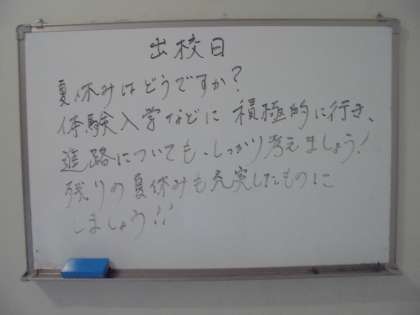 出校日
夏休みはどうですか?
体験入学などに積極的に行き、
進路についても、しっかり考えましょう!
残りの夏休みも充実したものに
しましょう!!